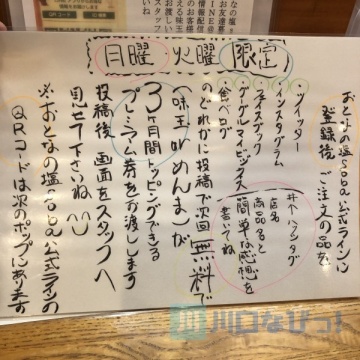 月曜 火曜 限定
おとなの塩Soba公式ラインの
登録後 ご注文の品を
・ツイッター
・インスタグラム
・フェイスブック
・グーグルマイビックス
・食べログ
#ハッシュタグ
店名
商品名と
簡単な感想を
書いてね
のどれかに投稿で次回無料で
(味玉orめんま)が
3ヶ月間トッピングできる
プレミアム券をお渡しします
投稿後 画面をスタッフへ
見せて下さいね
※おとなの塩Soba公式ラインの
QRコードは次のポップにあります
川口なびっ!